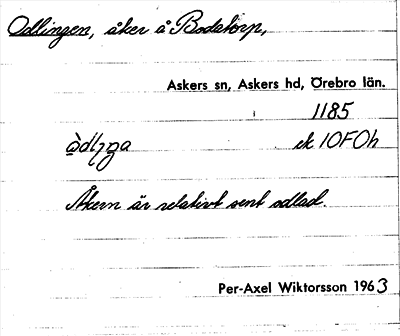 Odlingen, åker å Bodatorp,
Askers sn, Askers hd, Örebro län.
1185
ek 10F0h
Åkern är relativt sent odlad.
Per-Axel Wiktorsson 1963